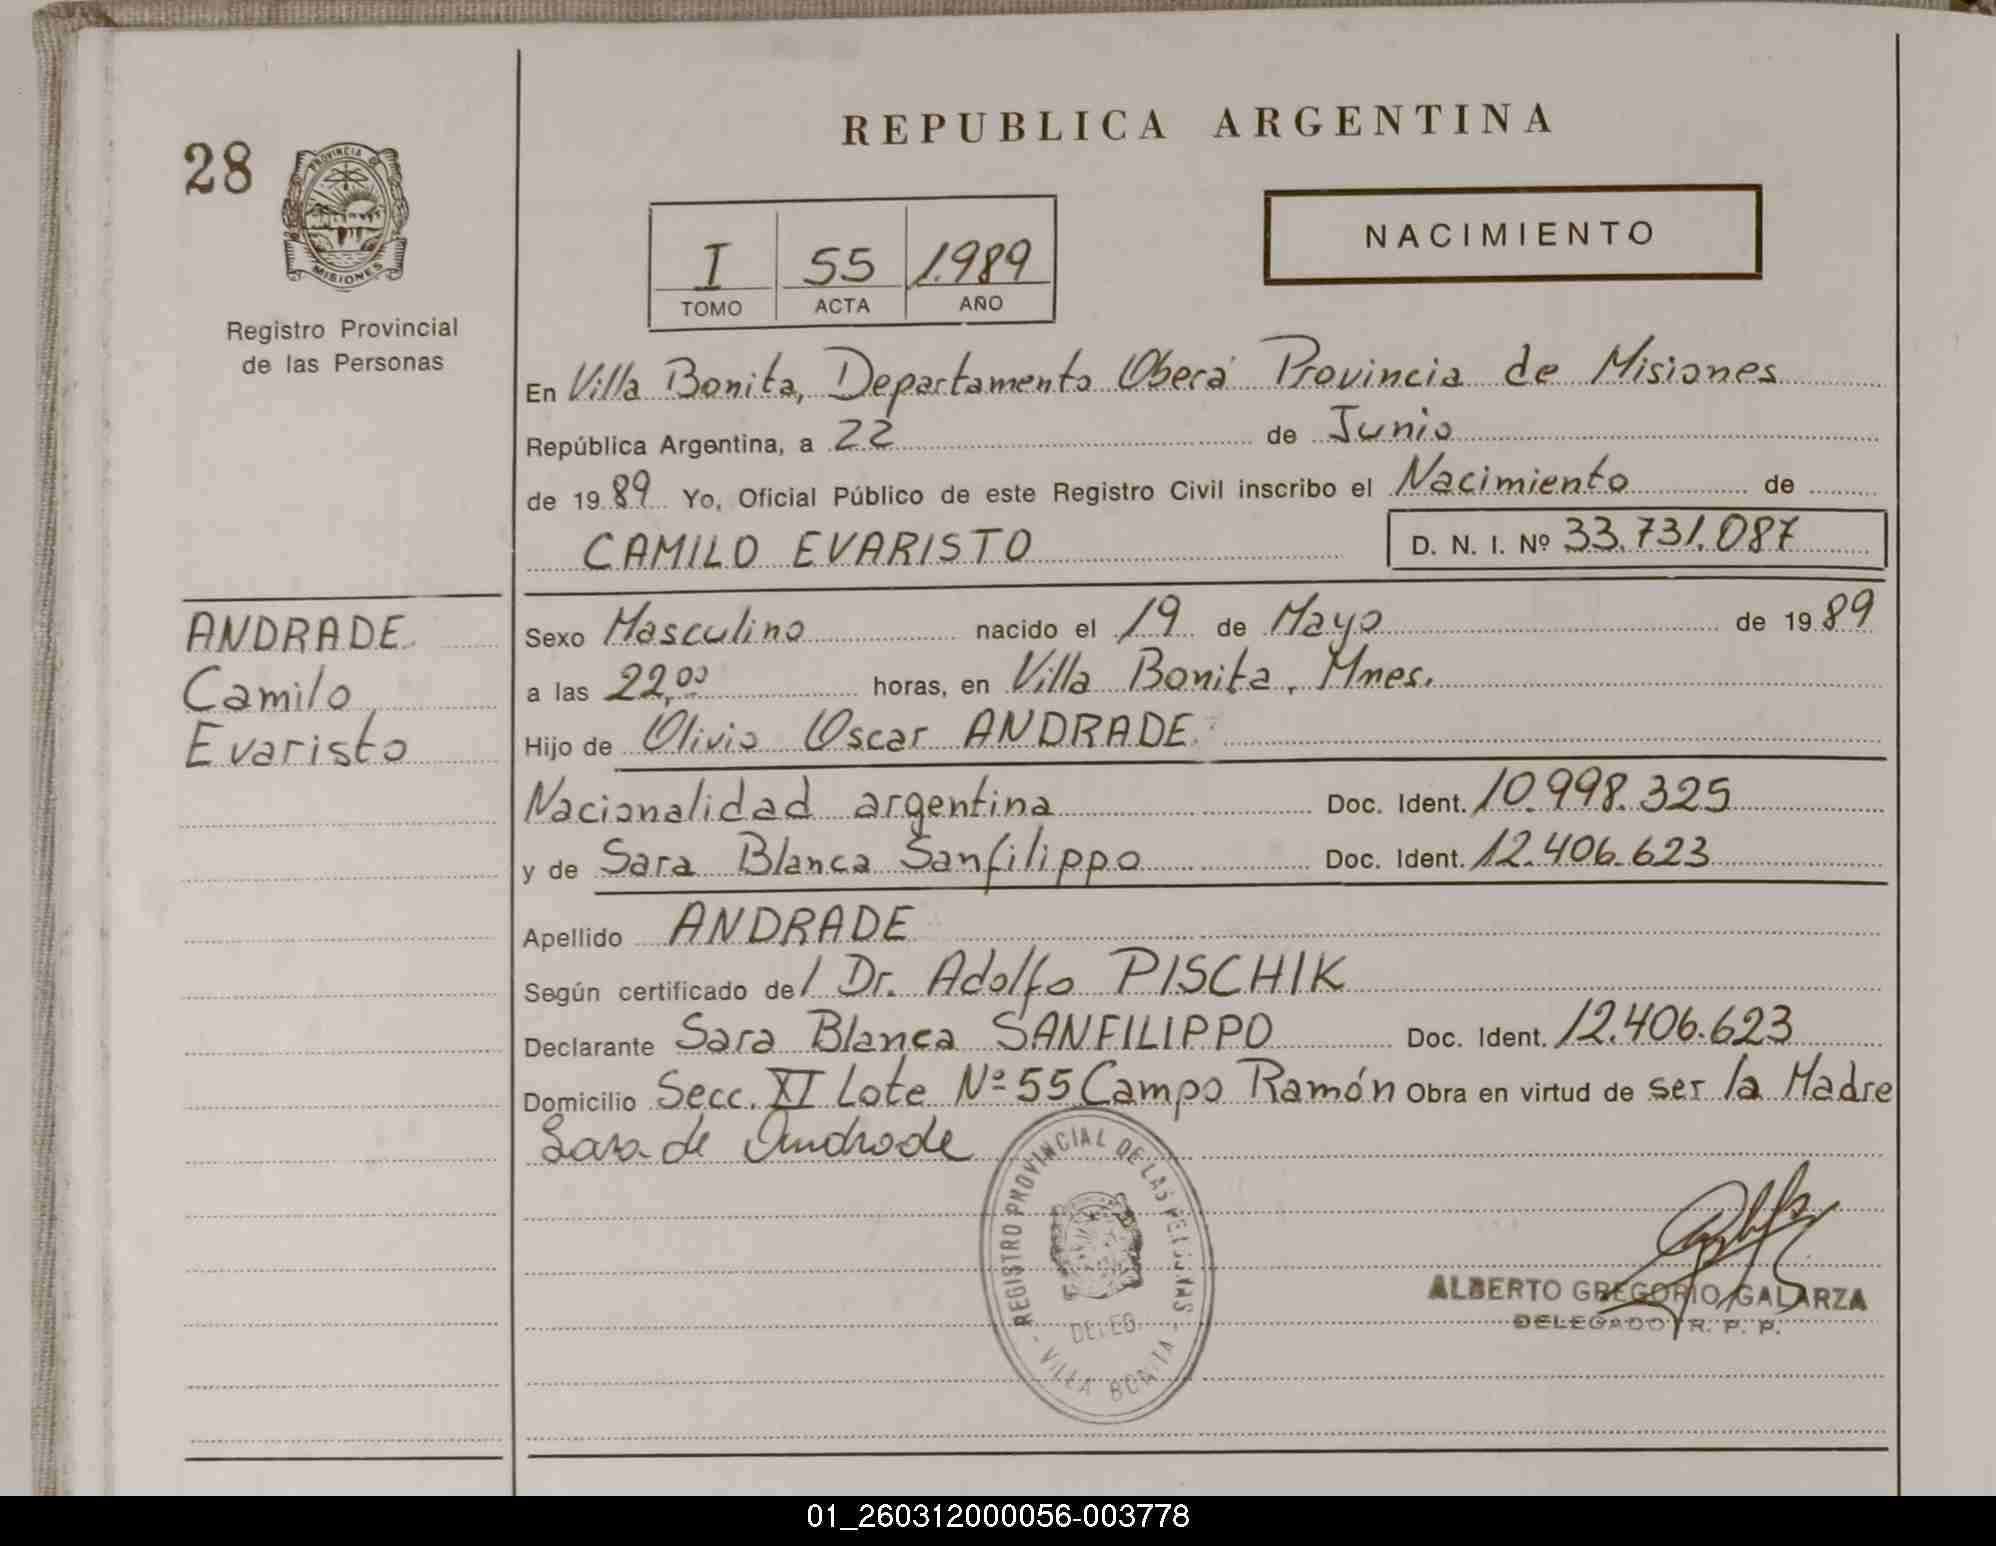 REPUBLICA ARGENTINA
28
PROVINCIA DE
MISIONES
Registro Provincial
de las Personas
I 55 1.989
TOMO ACTA AÑO
NACIMIENTO
En Villa Bonita, Departamento Oberá Provincia de Misiones
República Argentina, a 22 de Junio
de 1989 Yo, Oficial Público de este Registro Civil inscribo el Nacimiento de
CAMILO EVARISTO D. N. I. Nº 33.731.087
ANDRADE
Camilo
Evaristo
Sexo Masculino nacido el 19 de Mayo de 1989
a las 22,00 horas, en Villa Bonita, Mnes.
Hijo de Olivio Oscar ANDRADE
Nacionalidad argentina Doc. Ident. 10.998.325
y de Sara Blanca Sanfilippo Doc. Ident. 12.406.623
Apellido ANDRADE
Según certificado del Dr. Adolfo PISCHIK
Declarante Sara Blanca SANFILIPPO Doc. Ident. 12.406.623
Domicilio Secc. XI Lote Nº 55 Campo Ramón Obra en virtud de ser la Madre
Sara de Andrade
REGISTRO PROVINCIAL DE LAS PERSONAS
DELEG.
- VILLA BONITA -
ALBERTO GREGORIO GALARZA
DELEGADO R. P. P.
01_260312000056-003778